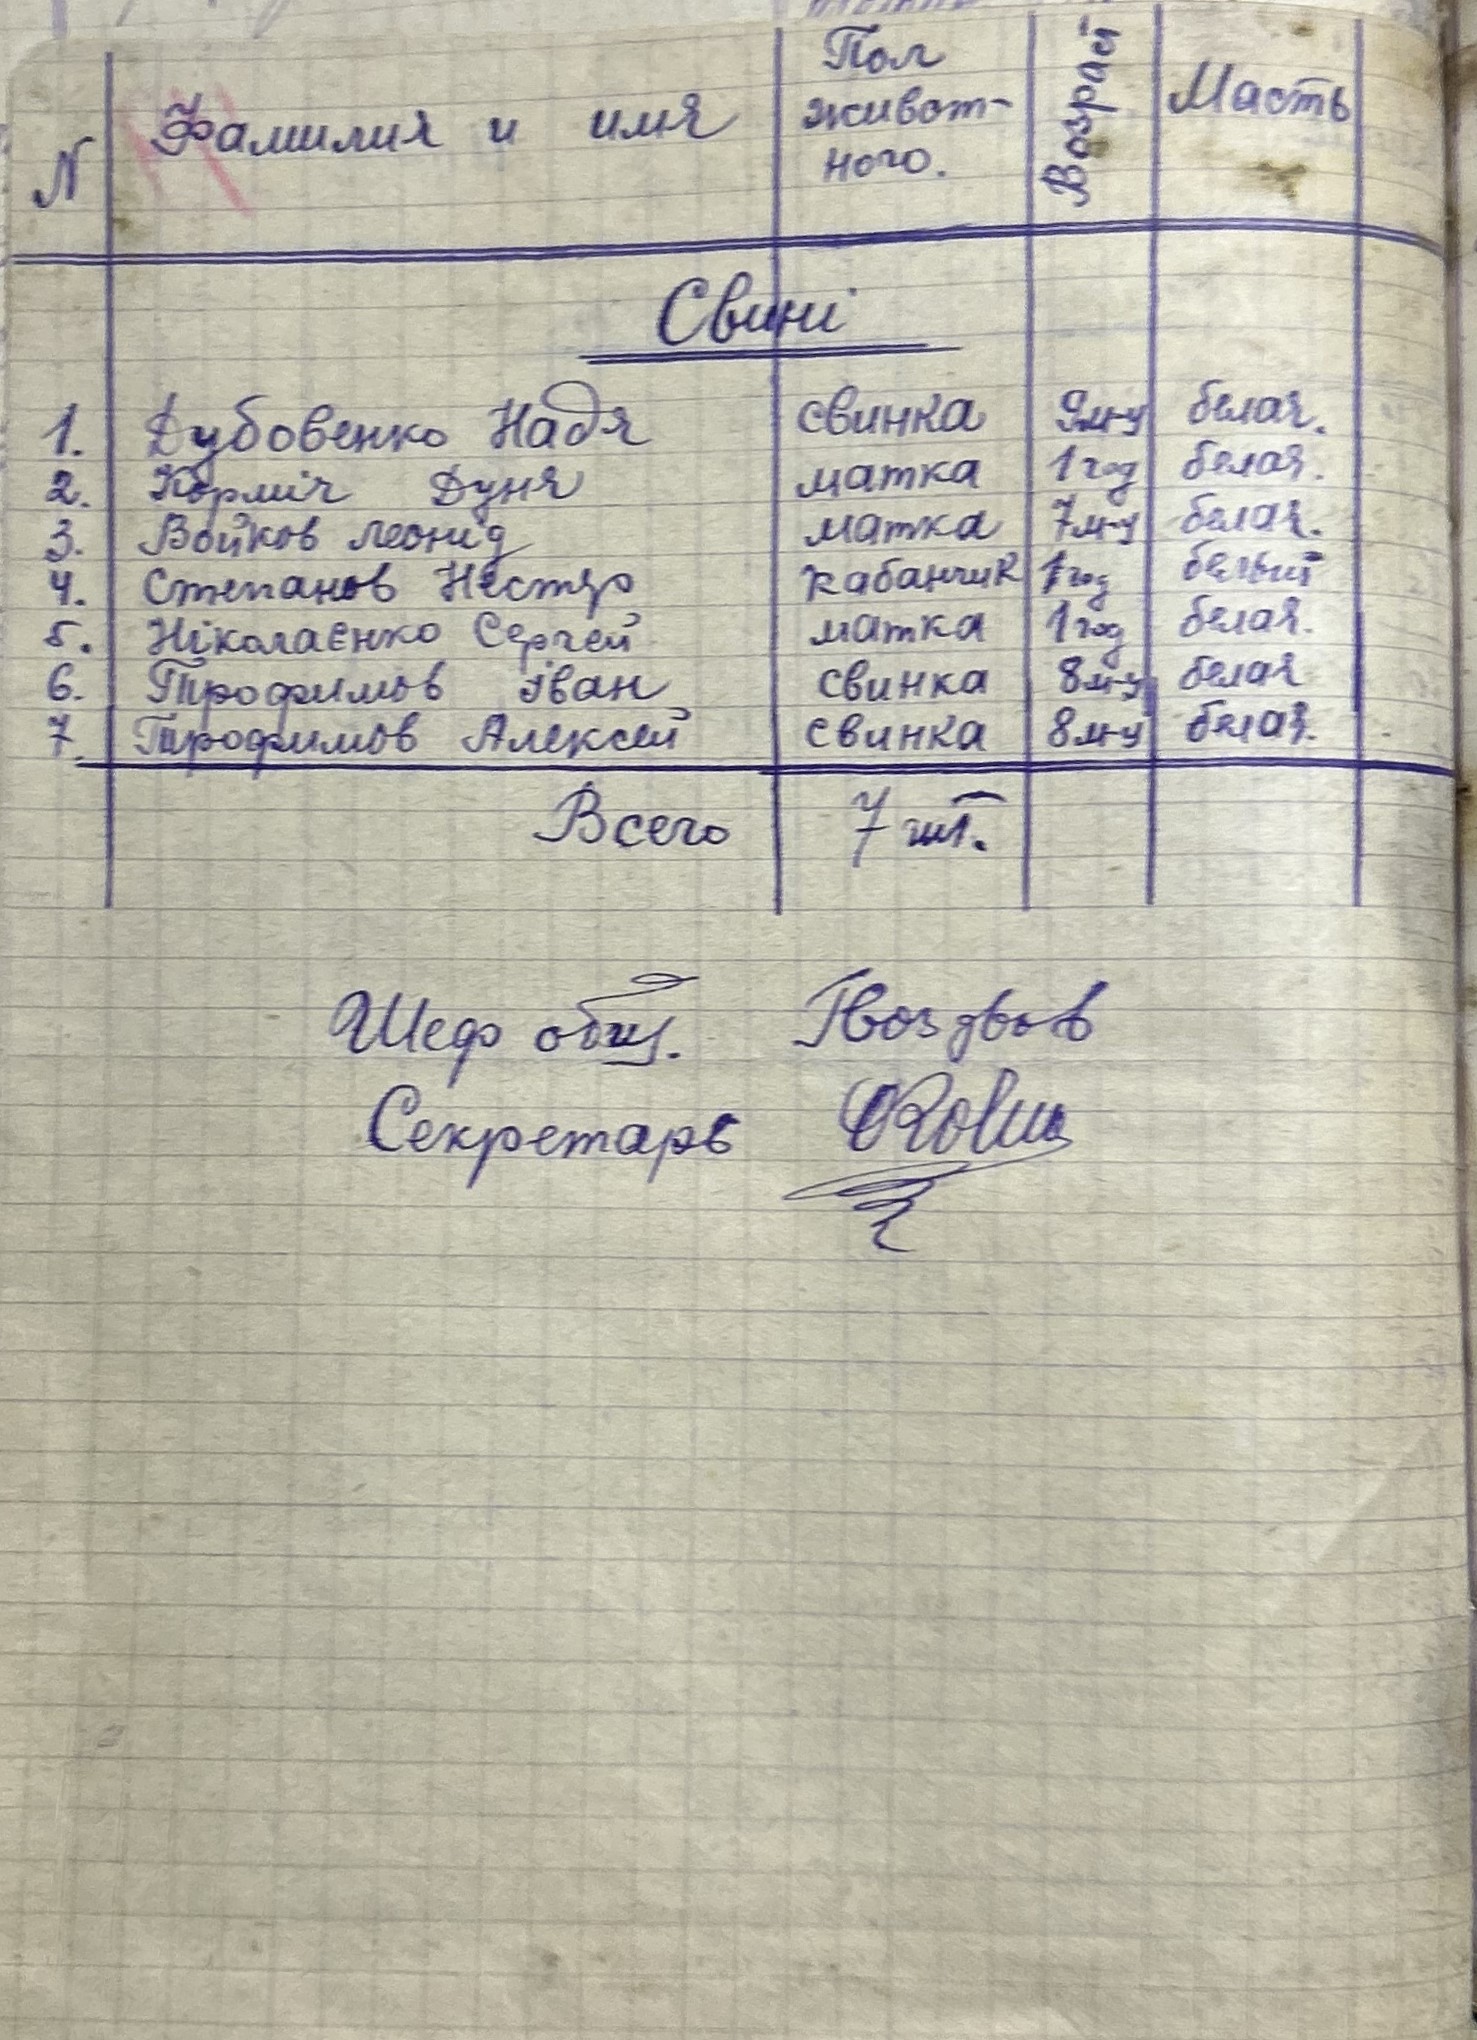 N Фамилия и имя Пол живот- ного. Возраст Масть
Свині
1. Дубовенко Надя свинка 9 м-у белая.
2. Корміч Дуня матка 1 год белая.
3. Войков Леонід матка 7 м-у белая.
4. Степанов Нестэр кабанчик 1 год белый
5. Ніколаєнко Сергей матка 1 год белая.
6. Трофимов Іван свинка 8 м-у белая
7. Трофимов Алексей свинка 8 м-у белая.
Всего 7 шт.
Шеф общ. Гвоздьов
Секретарь